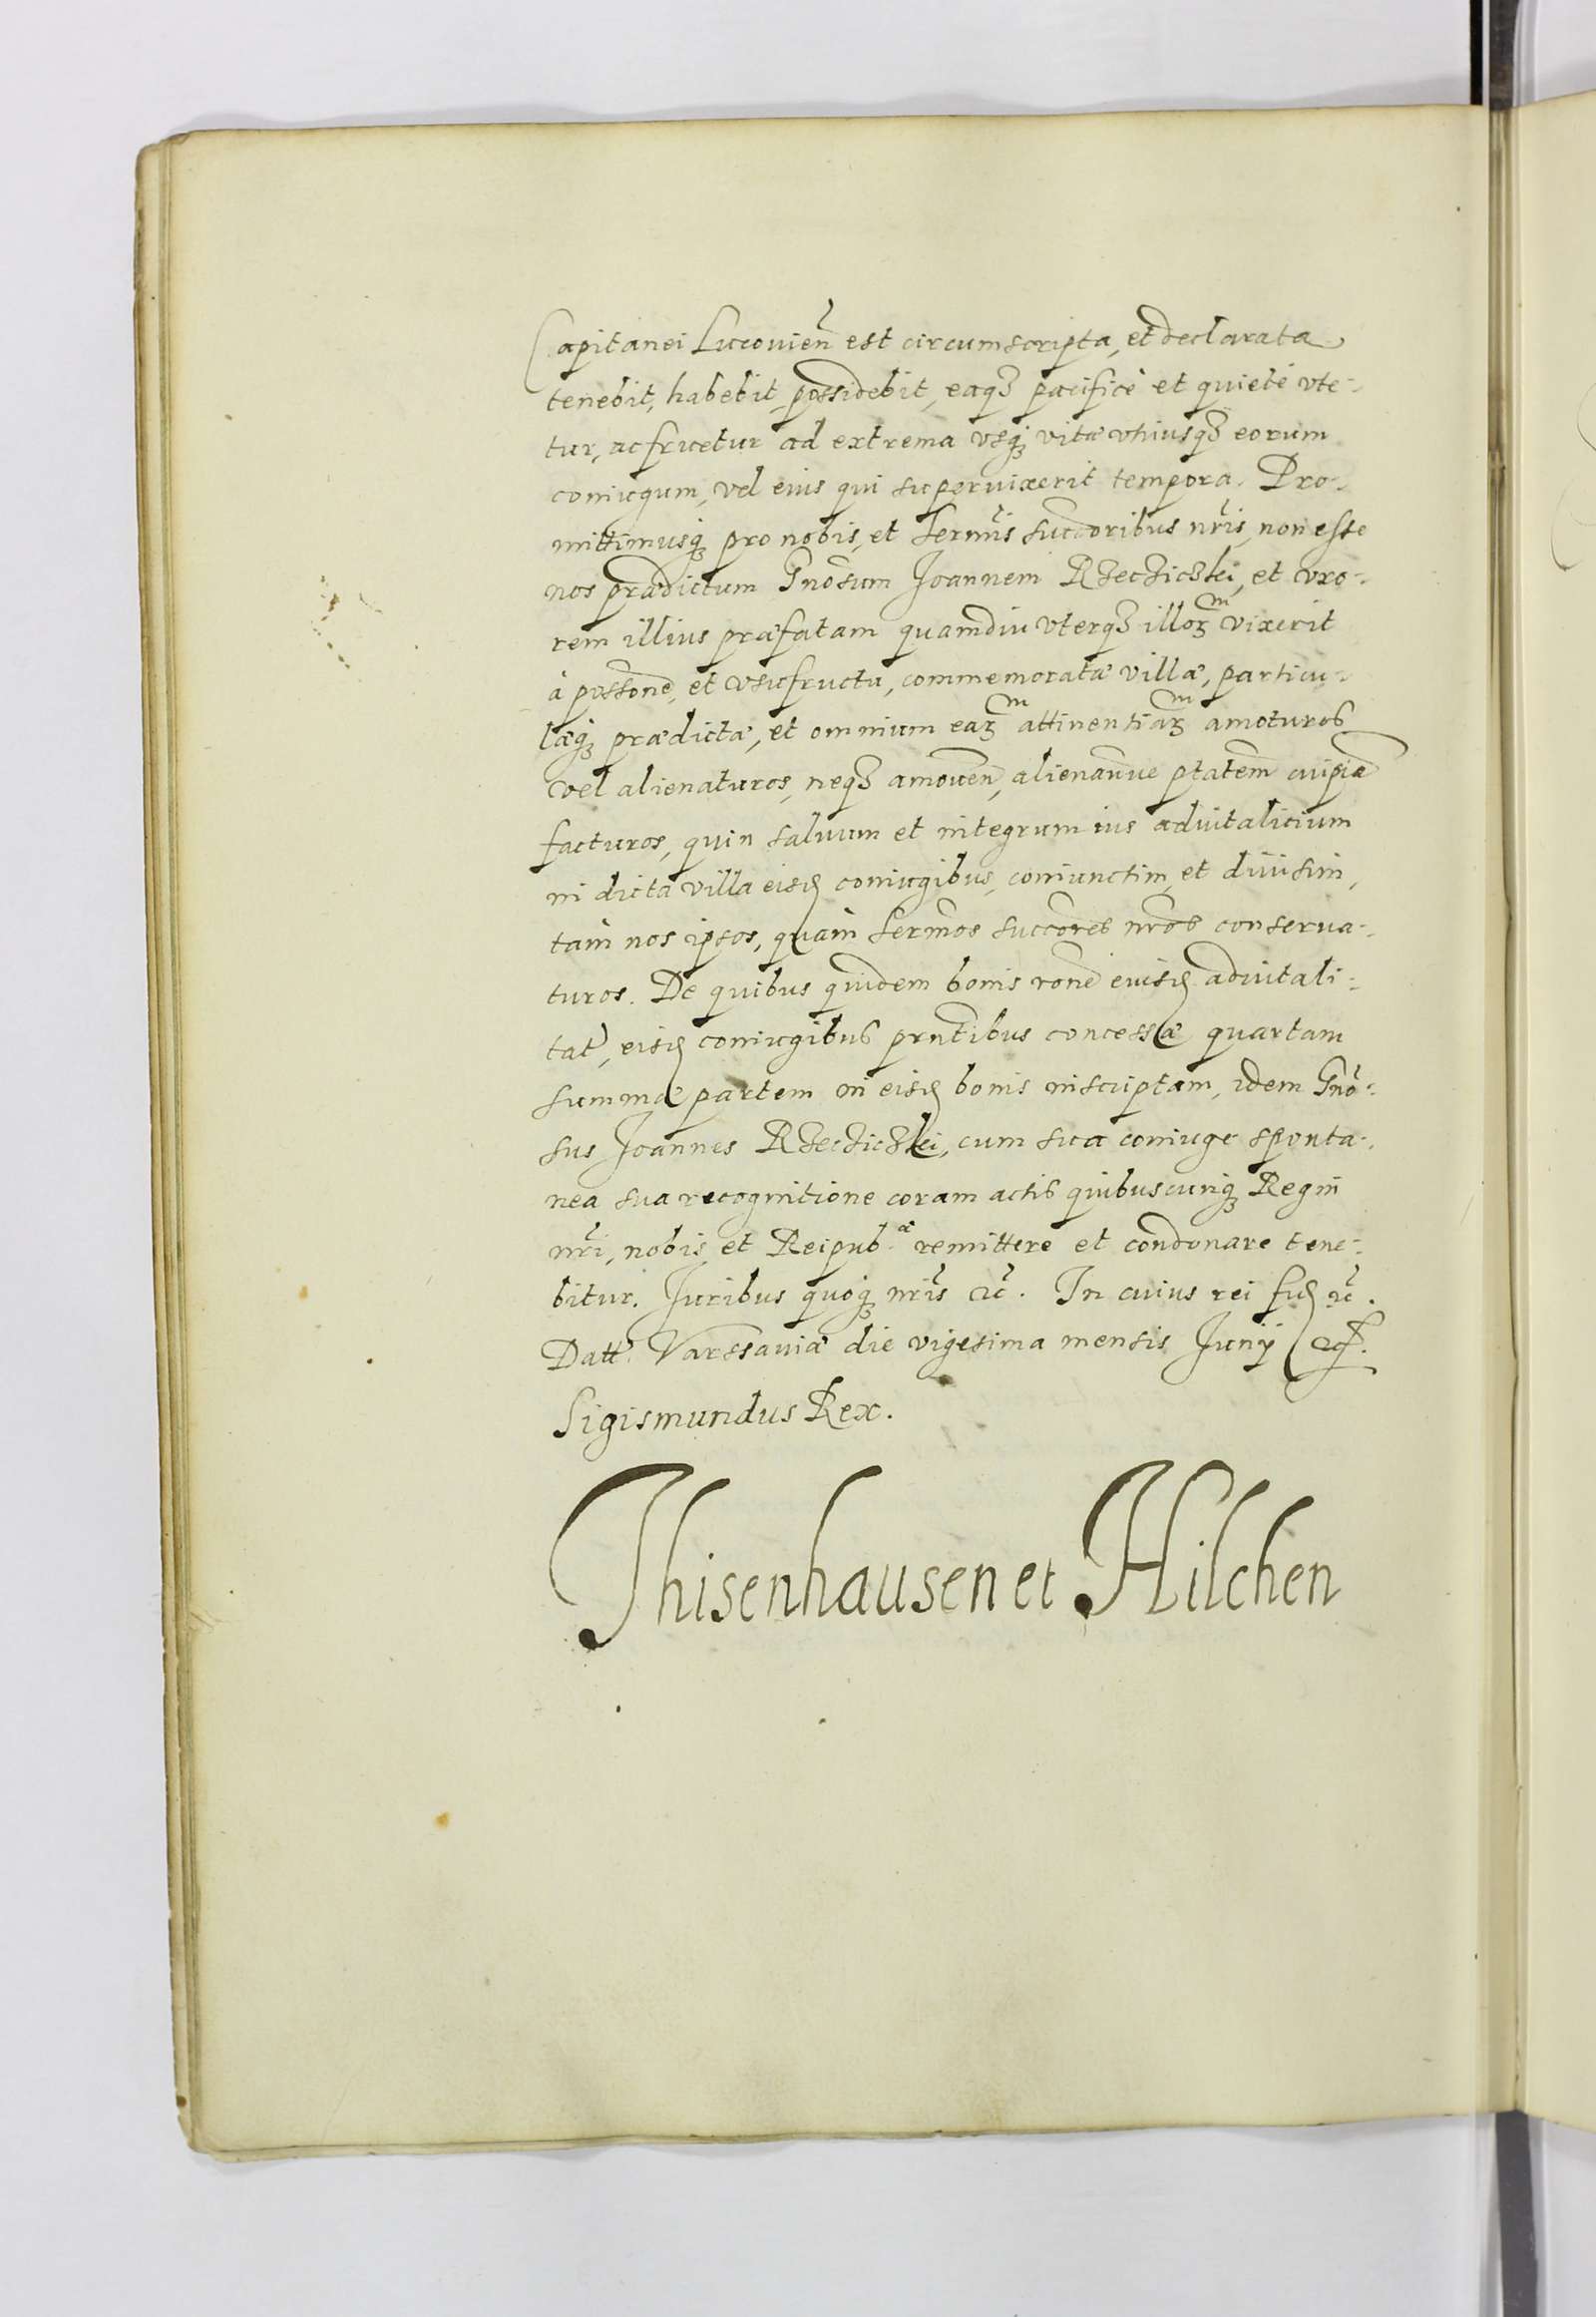 Capitanei Lucovieñ est circumscripta, et declarata
tenebit, habebit, possidebit, eaqꝫ pacificè et quietè vte-
tur, ac fruetur ad extrema vsqꝫ vitæ vtriusqꝫ eorum
coniugum, vel eius qui supervixerit tempora. Pro-
mittimusqꝫ pro nobis, et Sermis succoribus nris, non esse
nos prædictum Gnosum Joannem Rzecziczki, et vxo-
rem illius præfatam quamdiu vterqꝫ illoꝝᵐ vixerit
à possone, et vsufructu, commemoratæ villæ, particu-
læqꝫ prædictæ, et omnium eaꝝᵐ attinentiaꝝᵐ amoturos
vel alienaturos, neqꝫ amoueñ, alienañve ptatem cuipiã
facturos, quin saluum et integrum ius aduitalicium
in dicta villa eisd coniugibus, coniunctim, et diuisim,
tam nos ipsos, quàm Sermos succores nros conserua-
turos. De quibus quidem bonis rone eiusd aduitali-
tat, eisd coniugibus prntibus concessæ quartam
summæ partem in eisd bonis inscriptam, idem Gno-
sus Joannes Rzecziczki, cum sua coniuge sponta-
nea sua recognitione coram actis quibuscunqꝫ Regni
nri, nobis et Reipub.æ remittere et condonare tene-
bitur. Juribus quoqꝫ nris &c. In cuius rei fid &c.
Datt. Varssaviæ die vigesima mensis Junij &c.
Sigismundus Rex.
Thisenhausen et Hilchen